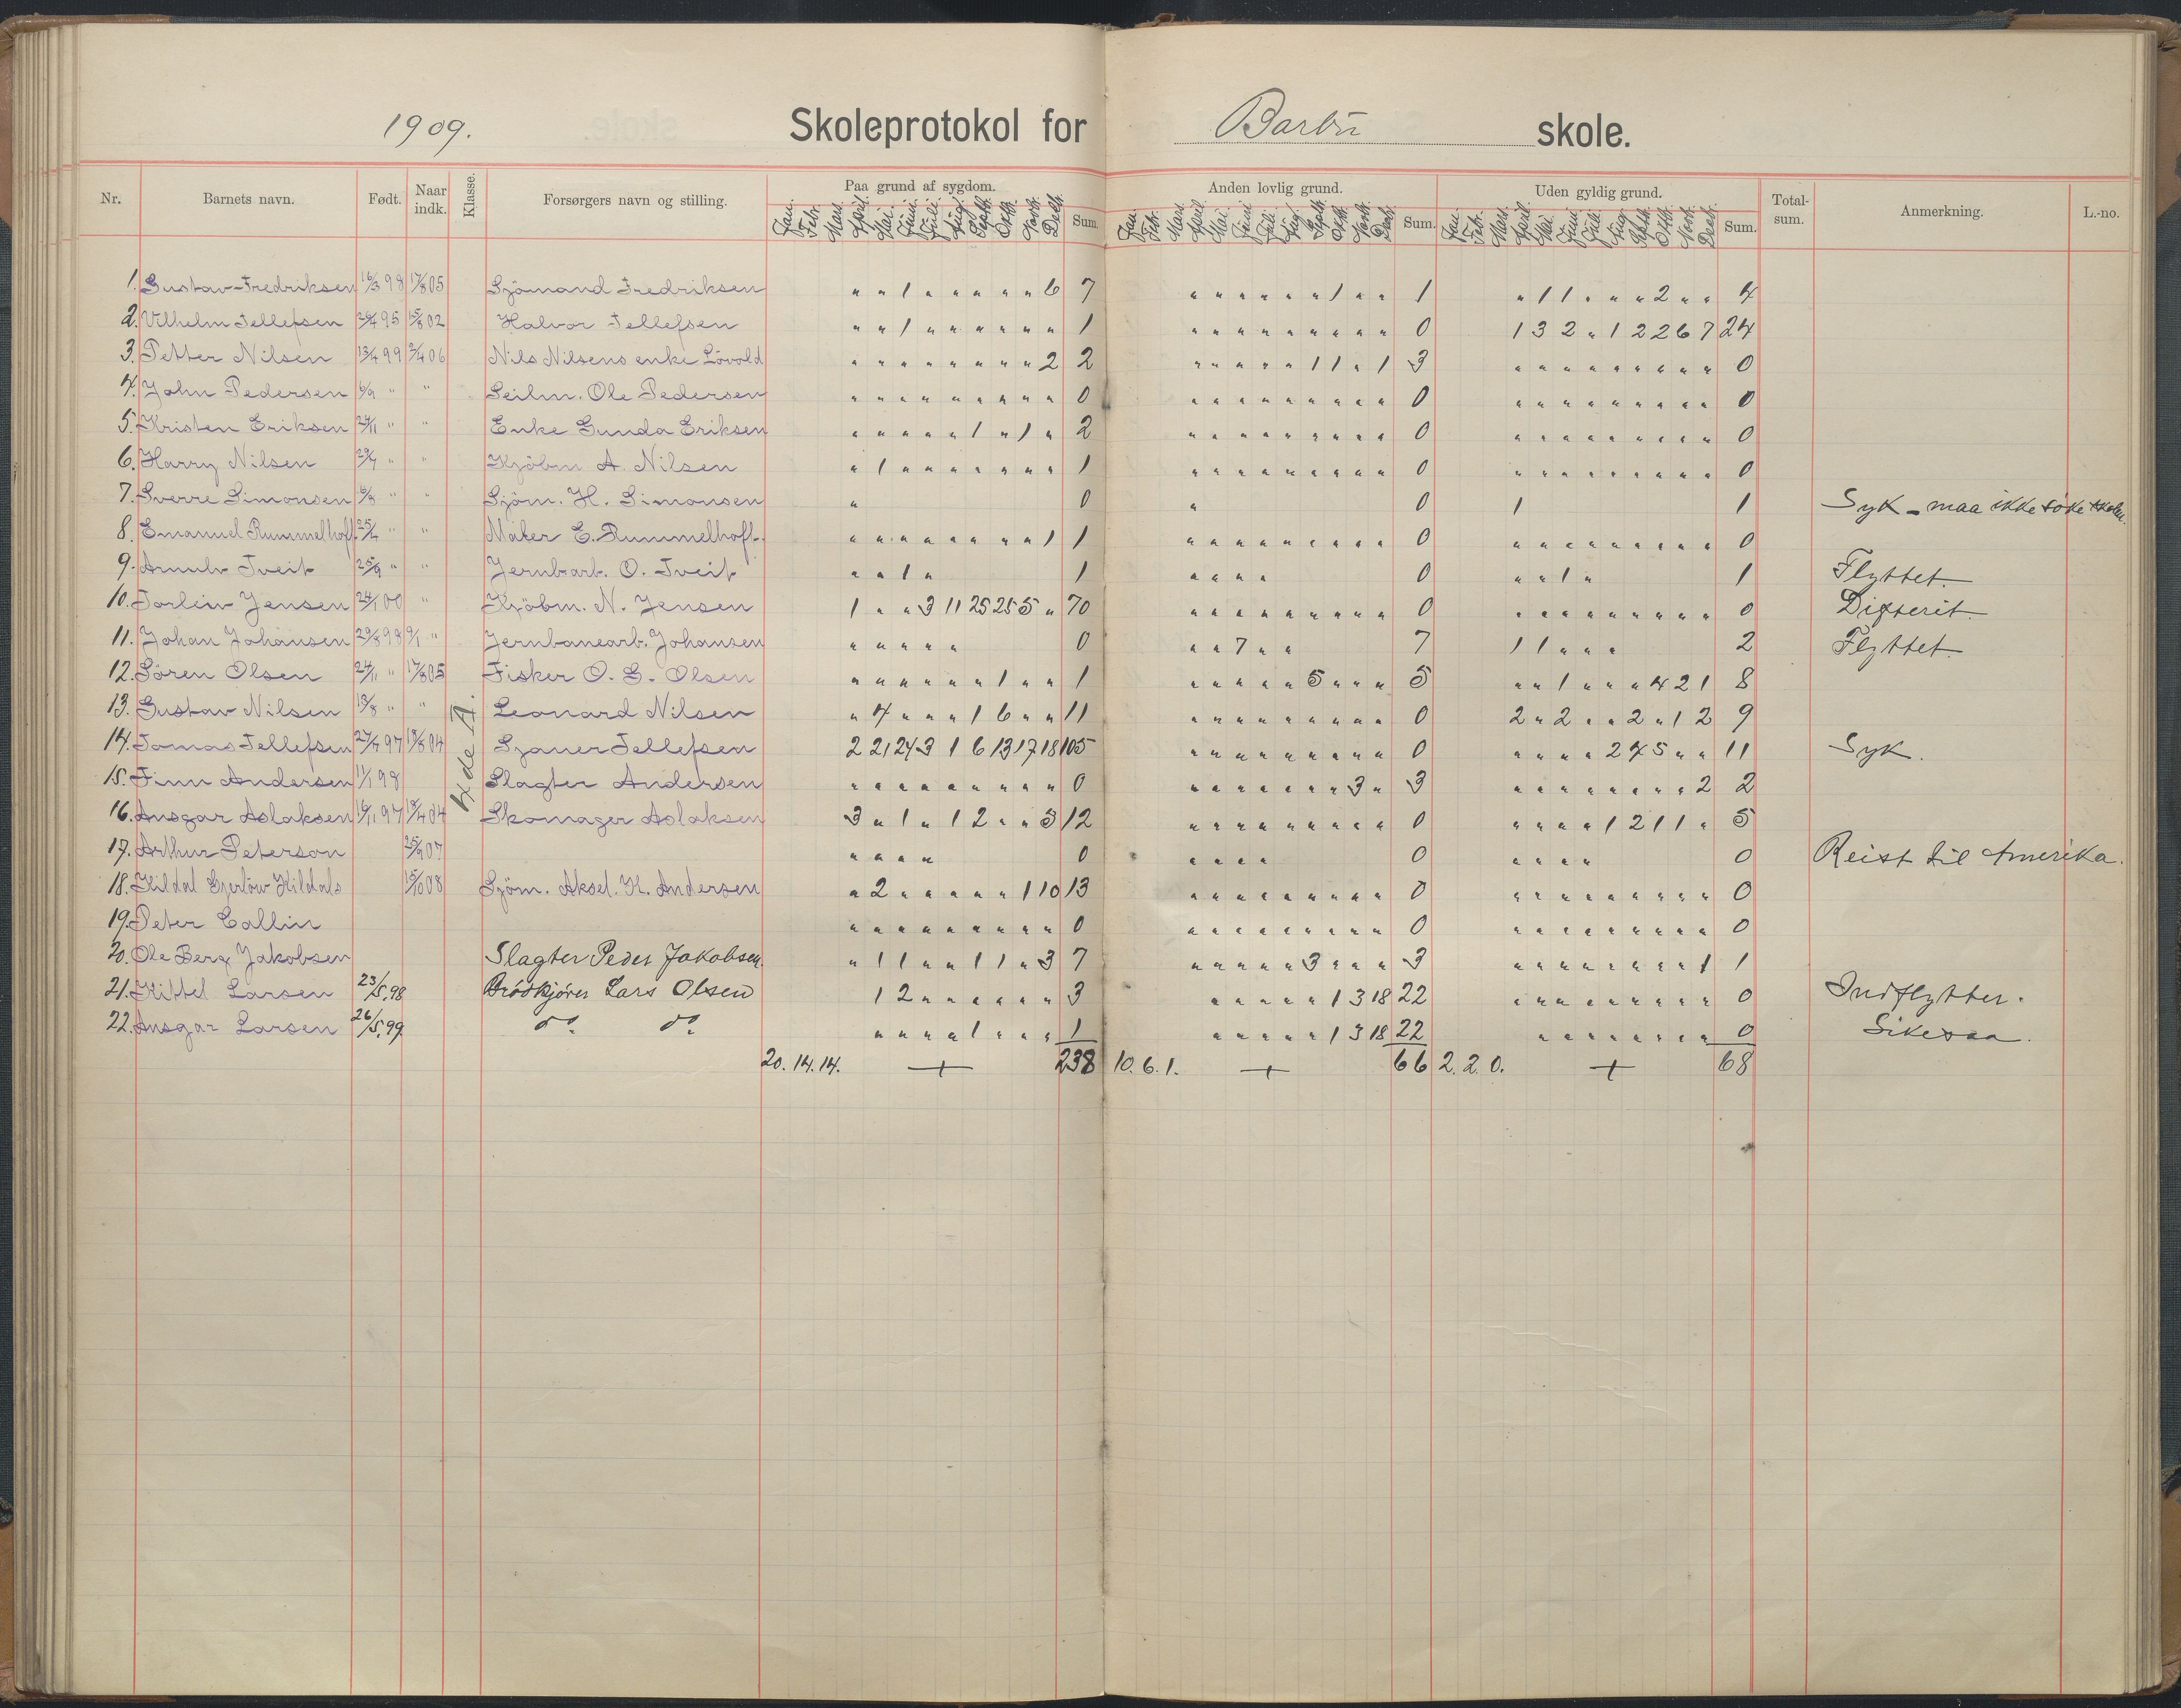 1909. Skoleprotokol for Barbu skole.
Nr. Barnets navn. Født. Naar indk. Klasse. Forsørgers navn og stilling. Paa grund af sygdom. Sum. Anden lovlig grund. Sum. Uden gyldig grund. Sum. Total-sum. Anmerkning. L.-no.
Jan. Febr. Mars. April. Mai. Juni. Juli. Aug. Septb. Oktb. Novb. Decb. Jan. Febr. Mars. April. Mai. Juni Juli. Aug. Septb. Oktb. Novb. Decb. Jan. Febr. Mars. April. Mai. Juni Juli. Aug. Septb. Oktb. Novb. Decb.
4de A.
1. Gustav Fredriksen 16/3 98 17/8 05 Sjömand Fredriksen " " 1 " " " " " 6 7 " " " " " " 1 " " 1 " 1 1 " " " 2 " " 4
2. Vilhelm Tellefsen 26/4 95 15/8 02 Halvor Tellefsen " " 1 " " " " " " 1 " " " " " " " " " 0 1 3 2 " 1 2 2 6 7 24
3. Petter Nilsen 13/4 99 /4 06 Nils Nilsens enke Lövold " " " " " " " " 2 2 " " " " " 1 1 " 1 3 " " " " " " " " " 0
4. John Pedersen 6/9 " " Seilm. Ole Pedersen " " " " " " " " " 0 " " " " " " " " " 0 " " " " " " " " " 0
5. Kristen Eriksen 24/11 " " Enke Gunda Eriksen " " " " " 1 " 1 " 2 " " " " " " " " " 0 " " " " " " " " " 0
6. Harry Nilsen 29/7 " " Kjöbm A. Nilsen " 1 " " " " " " " 1 " " " " " " " " " 0 " " " " " " " " " 0
7. Sverre Simonsen 6/8 " " Sjöm. H. Simonsen " 0 " 0 1 1 Syk - maa ikke söke skolen.
8. Emanuel Rummelhoff. 25/4 " " Maler E. Rummelhoff. " " " " " " " " 1 1 " " " " " " " " " 0 " " " " " " " " " 0
9. Arnulv Tveit 25/9 " " Jernbarb. O. Tveit " " 1 " 1 " " " " 0 " " 1 " 1 Flyttet.
10. Torleiv Jensen 24/1 00 " Kjöbm. N. Jensen 1 " " 3 11 25 25 5 " 70 " " " " " " " " " 0 " " " " " " " " " 0 Difterit.
11. Johan Johansen 29/8 98 9/1 " Jernbanearb. Johansen " " " " " 0 " " 7 " " 7 1 1 " " " 2 Flyttet.
12. Sören Olsen 24/11 " 17/8 05 Fisker O. G. Olsen " " " " " " 1 " " 1 " " " " " 5 " " " 5 " " 1 " " " 4 2 1 8
13. Gustav Nilsen 19/8 " " Leonard Nilsen " 4 " " " 1 6 " " 11 " " " " " " " " " 0 2 " 2 " " 2 " 1 2 9
14. Tomas Tellefsen 27/4 97 18/8 04 Sjauer Tellefsen 2 21 24 3 1 6 13 17 18 105 " " " " " " " " " 0 " " " " 2 4 5 " " 11 Syk.
15. Finn Andersen 11/1 98 Slagter Andersen " " " " " " " " " 0 " " " " " " " 3 " 3 " " " " " " " " 2 2
16. Ansgar Aslaksen 16/11 97 18/4 04 Skomager Aslaksen 3 " 1 " 1 2 " " 5 12 " " " " " " " " " 0 " " " " 1 2 1 1 " 5
17. Arthur Peterson 25/9 07 " " " " 0 " " " " 0 " " " " 0 Reist til Amerika.
18. Kildal Gjerlöw Kildals 15/10 08 Sjöm. Aksel. K. Andersen " 2 " " " " " 1 10 13 " " " " " " " " " 0 " " " " " " " " " 0
19. Peter Callin " " " " " " " " " 0 " " " " " " " " " 0 " " " " " " " " " 0
20. Ole Berg Jakobsen Slagter Peder Jakobsen. " 1 1 " " 1 1 " 3 7 " " " " " 3 " " " 3 " " " " " " " " 1 1
21. Kittel Larsen 23/5.98 Brödkjörer Lars Olsen 1 2 " " " " " " 3 " " " " " 1 3 18 22 " " " " " " " " " 0 Indflytter.
22. Ansgar Larsen 26/5.99 do. do. " " " " 1 " " " 1 " " " " " 1 3 18 22 " " " " " " " " 0
20. 14. 14. + 238 10. 6. 1. + 66 2. 2. 0. + 68